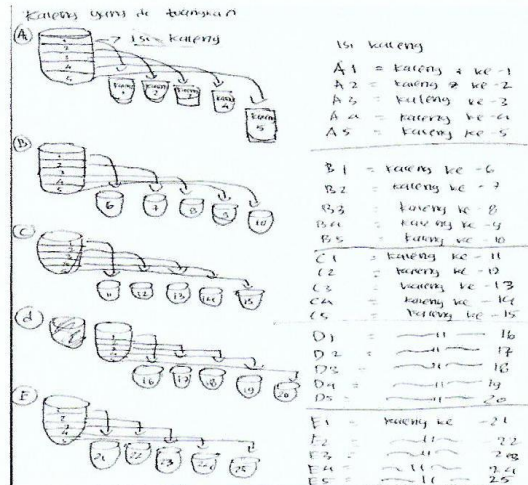 Kaleng yang di tuangkan
A
→ isi kaleng
1
2
3
4
5
Kaleng 1
Kaleng 2
Kaleng 3
Kaleng 4
Kaleng 5
B
1
2
3
4
5
6
7
8
9
10
C
1
2
3
4
5
11
12
13
14
15
d
1
2
3
4
5
16
17
18
19
20
E
1
2
3
4
5
21
22
23
24
25
Isi kaleng
A1 = Kaleng ke -1
A2 = Kaleng ke -2
A3 = Kaleng ke -3
A4 = Kaleng ke -4
A5 = Kaleng ke -5
B1 = Kaleng ke -6
B2 = Kaleng ke -7
B3 = Kaleng ke -8
B4 = Kaleng ke -9
B5 = Kaleng ke -10
C1 = Kaleng ke -11
C2 = Kaleng ke -12
C3 = Kaleng ke -13
C4 = Kaleng ke -14
C5 = Kaleng ke -15
D1 = —— 〃 —— 16
D2 = —— 〃 —— 17
D3 = —— 〃 —— 18
D4 = —— 〃 —— 19
D5 = —— 〃 —— 20
E1 = Kaleng ke -21
E2 = —— 〃 —— -22
E3 = —— 〃 —— 23
E4 = —— 〃 —— 24
E5 = —— 〃 —— 25